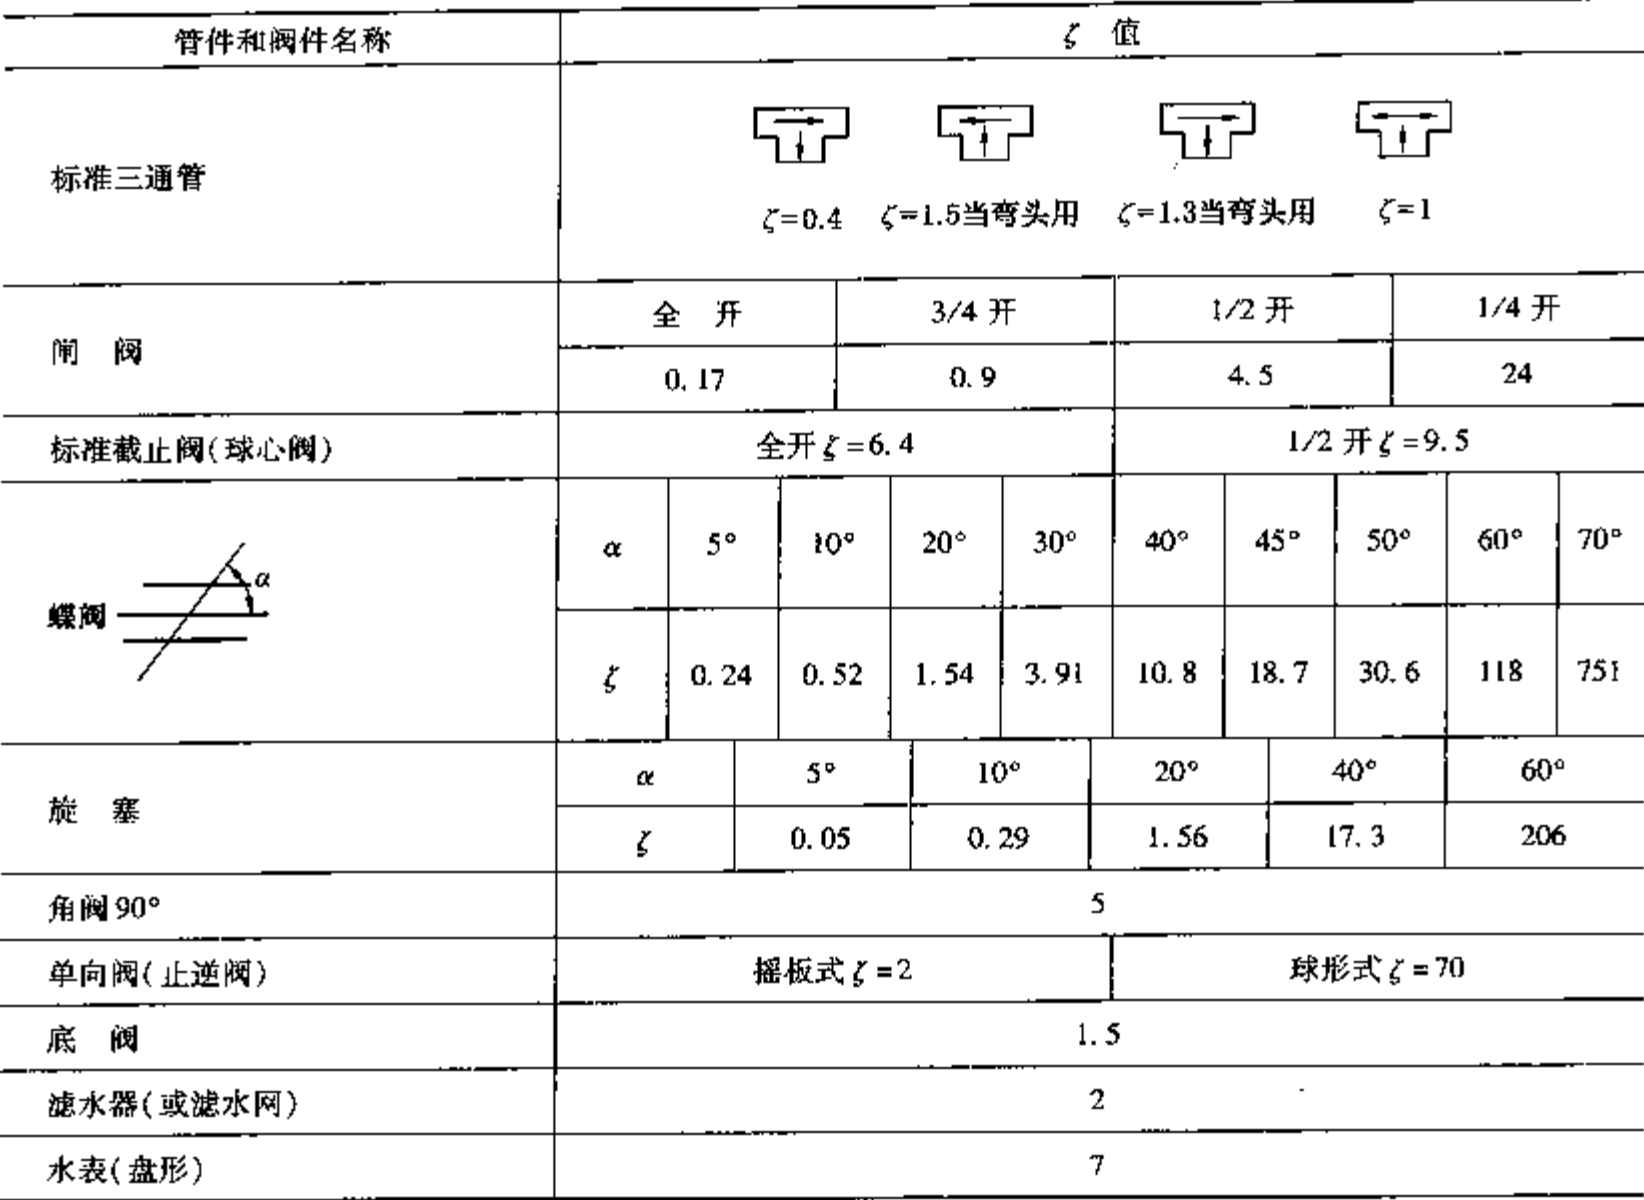 管件和阀件名称 ζ 值
标准三通管
ζ=0.4 ζ=1.5当弯头用 ζ=1.3当弯头用 ζ=1
闸 阀
全 开 3/4 开 1/2 开 1/4 开
0.17 0.9 4.5 24
标准截止阀(球心阀) 全开 ζ=6.4 1/2 开 ζ=9.5
蝶阀 α
α 5° 10° 20° 30° 40° 45° 50° 60° 70°
ζ 0.24 0.52 1.54 3.91 10.8 18.7 30.6 118 751
旋 塞
α 5° 10° 20° 40° 60°
ζ 0.05 0.29 1.56 17.3 206
角阀 90° 5
单向阀(止逆阀) 摇板式 ζ=2 球形式 ζ=70
底 阀 1.5
滤水器(或滤水网) 2
水表(盘形) 7